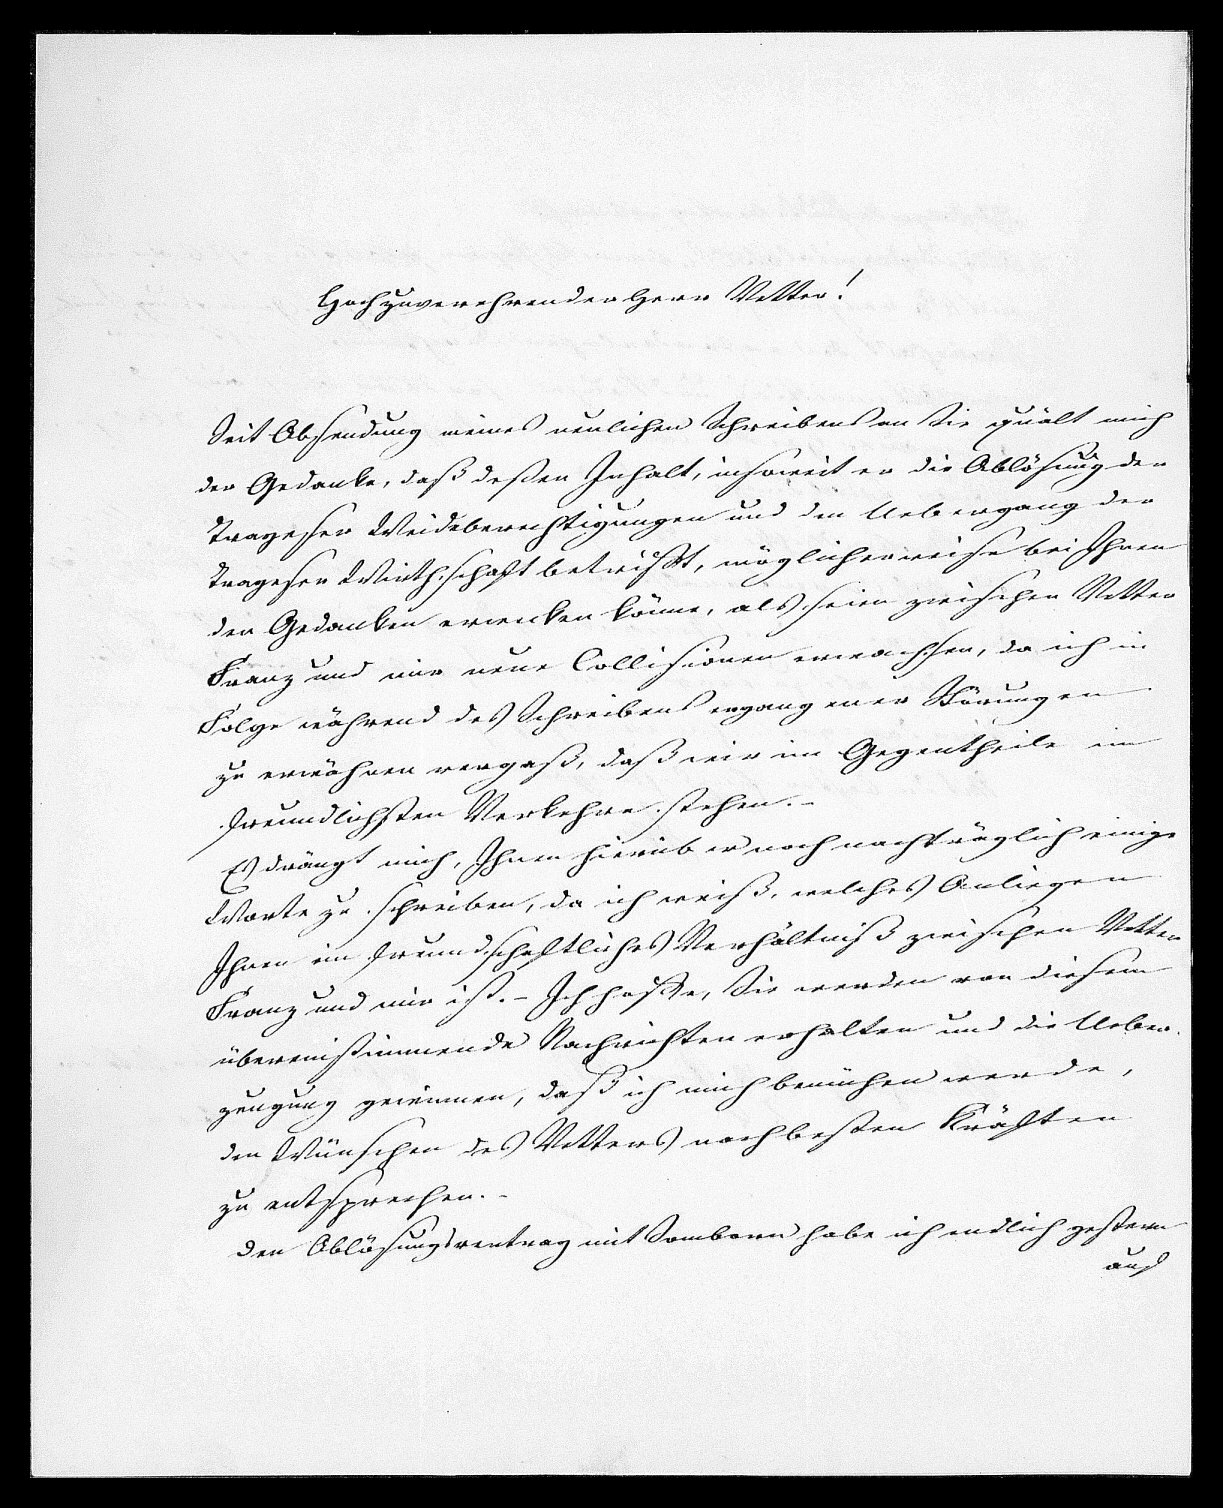 Hochzuverehrender Herr Vetter!
Seit Absendung meines neulichen Schreibens an Sie quält mich
der Gedanke, daß deßen Inhalt, insoweit er die Ablösung der
Trageser Weideberechtigungen und den Uebergang der
Trageser Wirthschaft betrifft, möglicherweise bei Ihnen
den Gedanken erwecken könne, als seien zwischen Vetter
Franz und mir neue Collisionen erwachsen, da ich in
Folge während des Schreibens ergangener Störungen
zu erwähnen vergaß, daß wir im Gegentheile im
freundlichsten Verkehre stehen. –
Es drängt mich, Ihnen hierüber noch nachträglich einige
Worte zu schreiben, da ich weiß, welches Anliegen
Ihnen ein freundschaftliches Verhältniß zwischen Vetter
Franz und mir ist. – Ich hoffe, Sie werden von diesem
übereinstimmende Nachrichten erhalten und die Ueber-
zeugung gewinnen, daß ich mich bemühen werde,
den Wünschen des Vetters nach besten Kräften
zu entsprechen. –
Den Ablösungsvertrag mit Somborn habe ich endlich gestern
auf